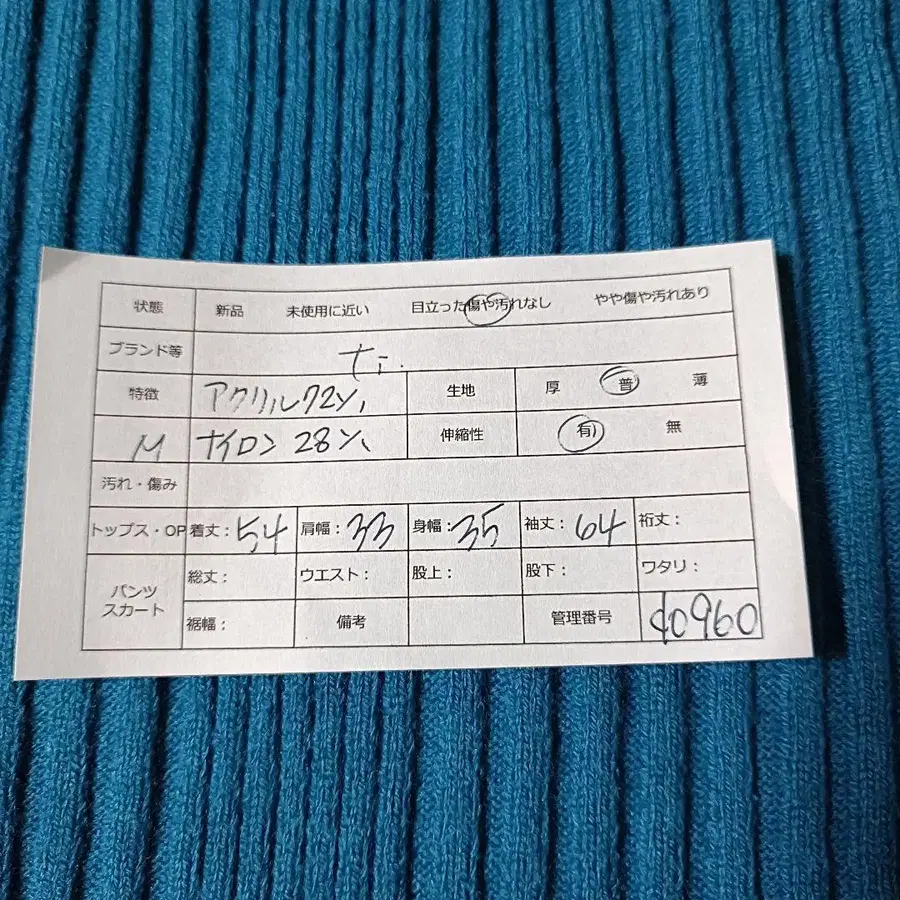 状態 新品 未使用に近い 目立った傷や汚れなし やや傷や汚れあり
ブランド等 ti.
特徴 アクリル72% 生地 厚 普 薄
M ナイロン 28% 伸縮性 有 無
汚れ・傷み
トップス・OP 着丈: 54 肩幅: 33 身幅: 35 袖丈: 64 裄丈:
パンツ スカート 総丈: ウエスト: 股上: 股下: ワタリ:
裾幅: 備考 管理番号 d0960